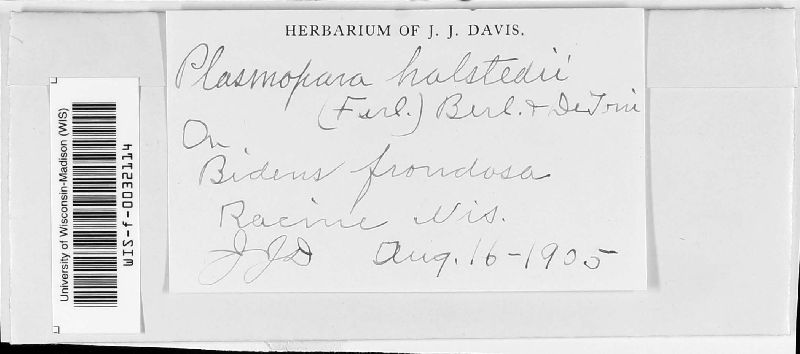 HERBARIUM OF J. J. DAVIS.
Plasmopara halstedii
(Farl.) Berl. & DeToni
On
Bidens frondosa
Racine Wis.
JJD Aug. 16-1905
University of Wisconsin-Madison (WIS)
WIS-f-0032114